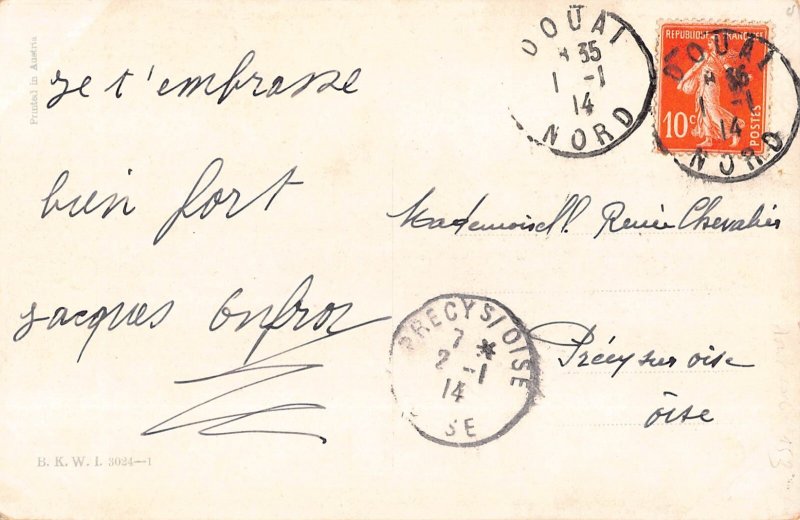 Printed in Austria
je t'embrasse
bien fort
jacques Onfroy
B. K. W. I. 3024—1
DOUAI
35
1 -1
14
NORD
REPUBLIQUE FRANÇAISE
10c
POSTES
DOUAI
36
1 -1
14
NORD
Mademoisell. Renée Chevalier
PRECY S/ OISE
7 *
2 -1
14
SE
Précy sur oise
oise